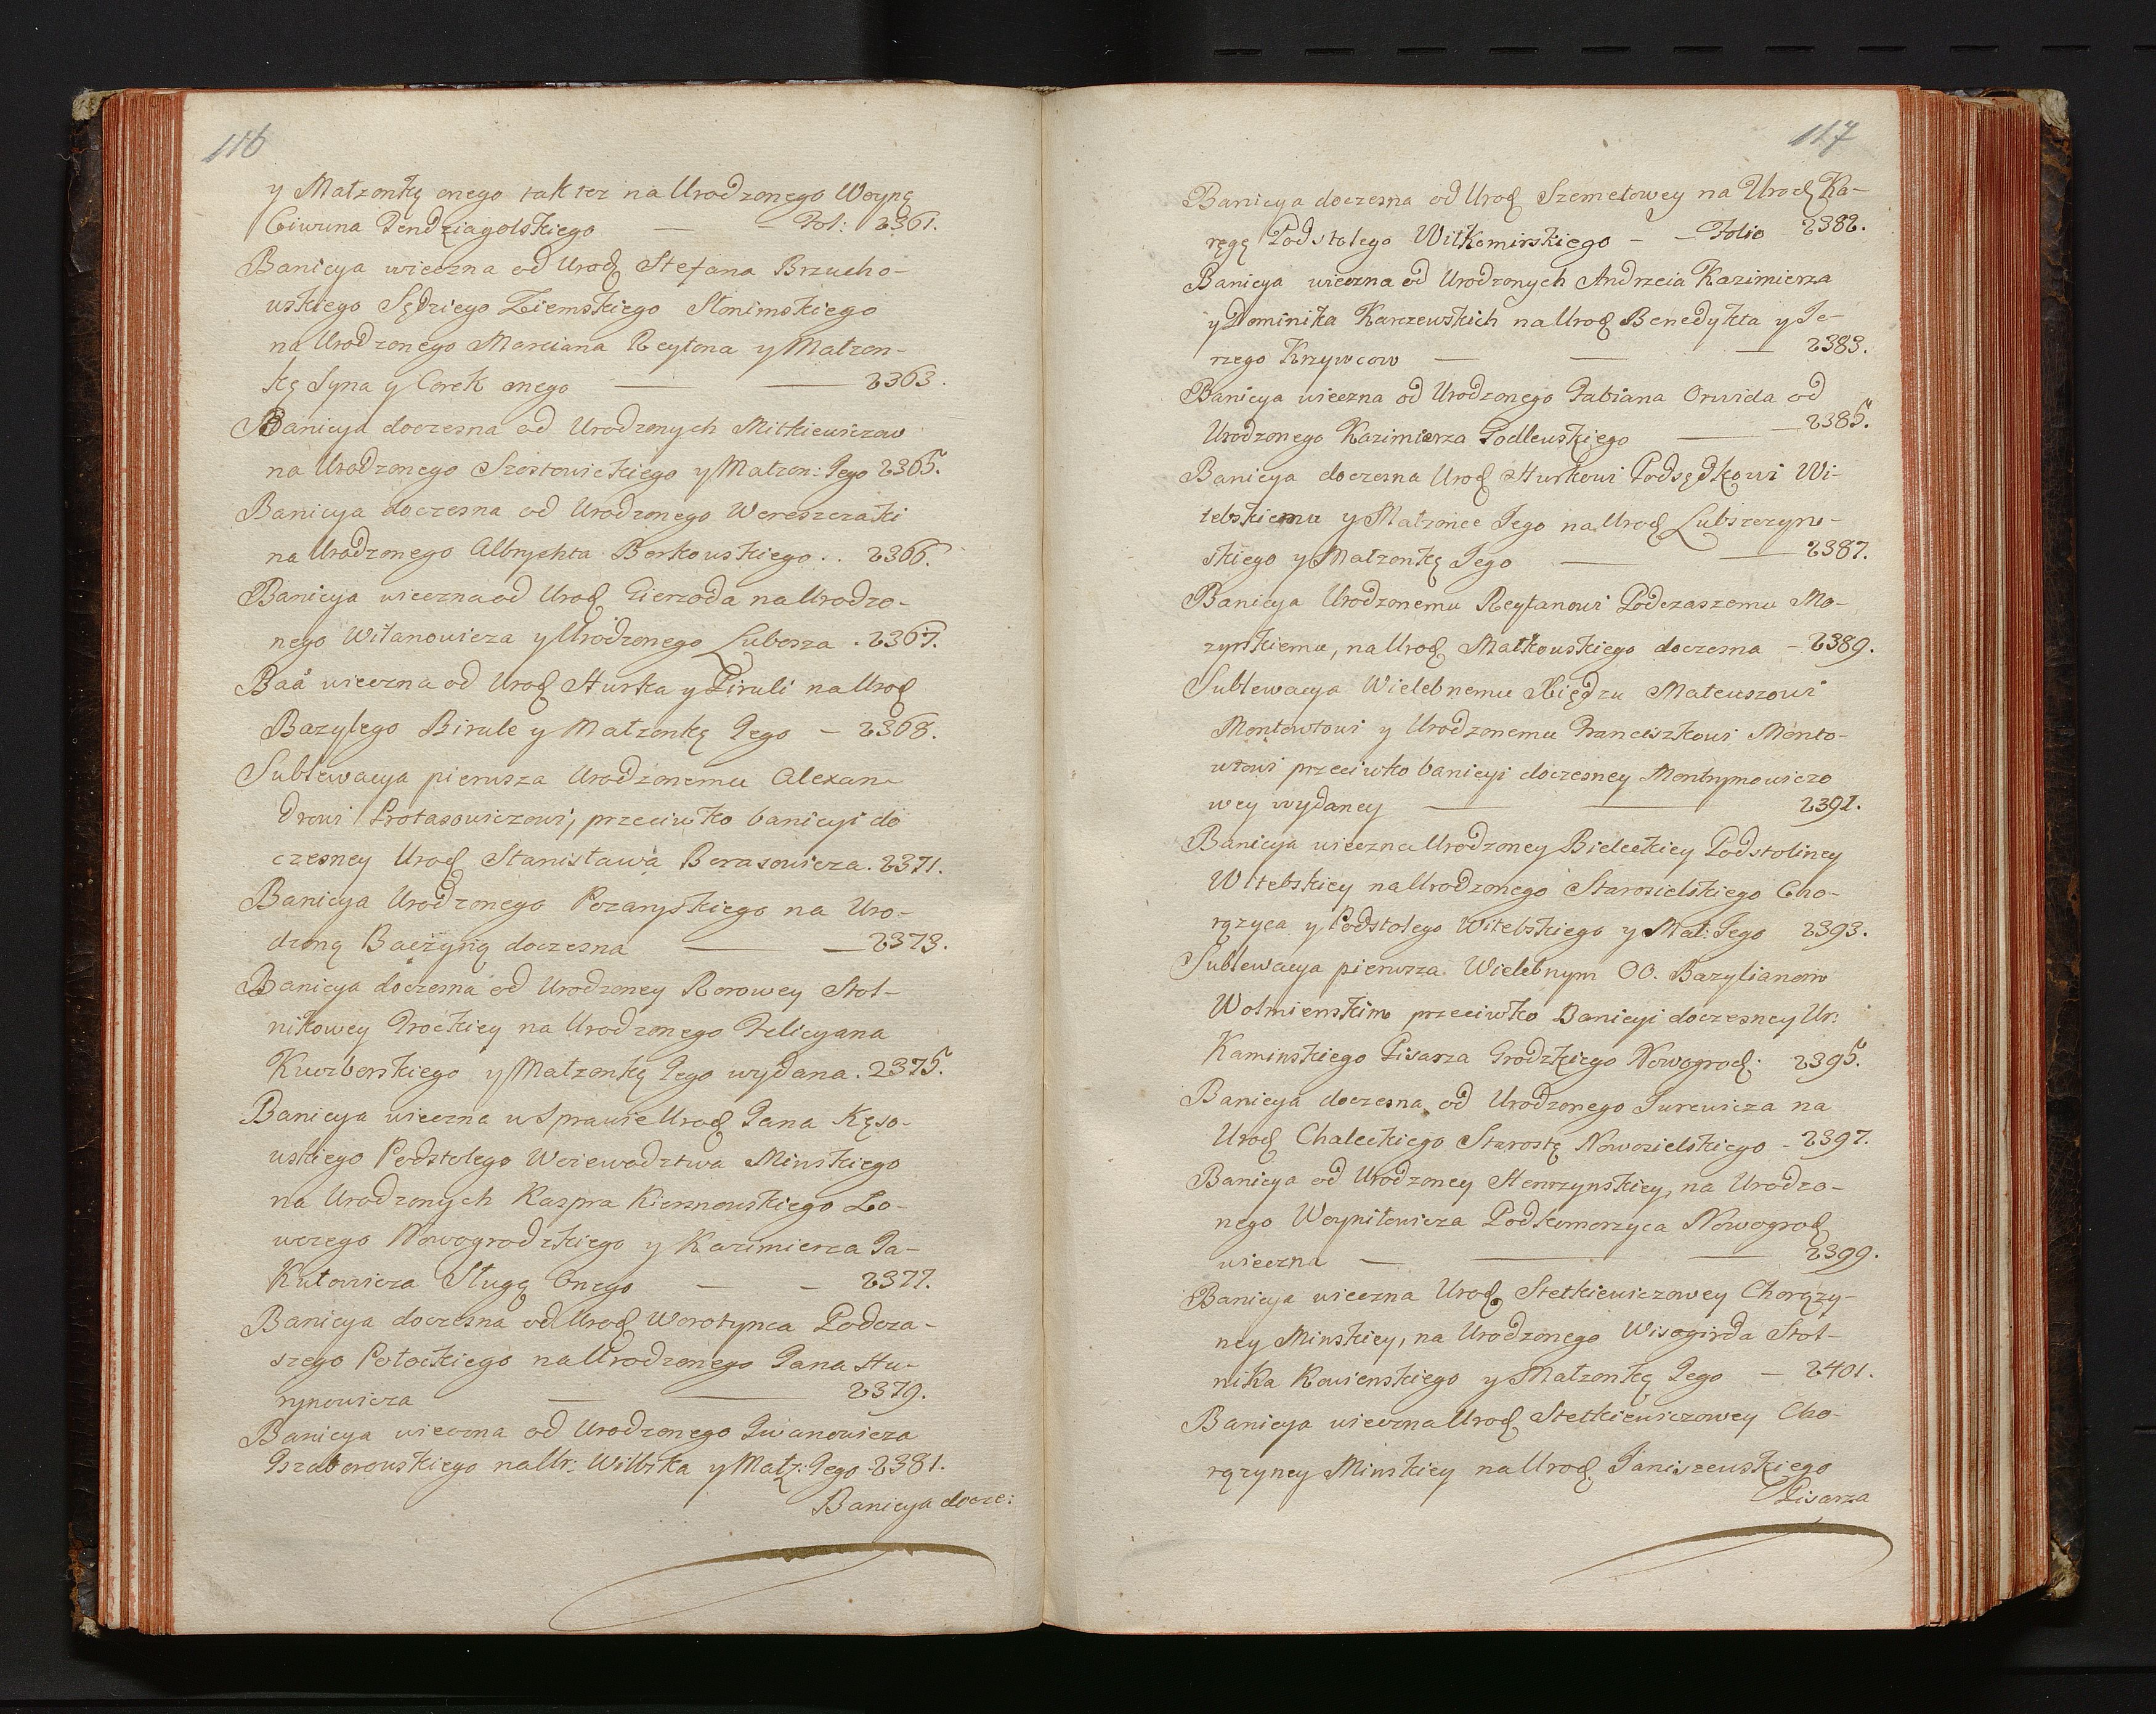 116
y Małzonkę onego tak tez na Urodzonego Woynę
Ciwuna Pendziagolskiego — – Fol: 2361.
Banicya wieczna od Urodz Stefana Brzucho-
wskiego Sędziego Ziemskiego Słonimskiego
na Urodzonego Marciana Reytena y Małzon-
kę Syna y Corek onego — — 2363.
Banicya doczesna od Urodzonych Mitkiewiczow
na Urodzonego Szostowickiego y Małzon: Jego 2365.
Banicya doczesna od Urodzonego Wereszczaki
na Urodzonego Albrychta Borkowskiego . . 2366.
Banicya wieczna od Urod Gierzoda na Urodzo-
nego Witanowicza y Urodzonego Lubosza . 2367.
Baã wieczna od Urod Hurka y Piruli na Urod
Bazylego Birule y Małzonkę Jego – 2368.
Sublewacya pierwsza Urodzonemu Alexan-
drowi Protasowiczowi, przeciwko banicyi do
czesney Urod Stanisława Borasowicza. 2371.
Banicya Urodzonego Pozaryskiego na Uro-
dzoną Baczyną doczesna — — 2373.
Banicya doczesna od Urodzoney Rorowey Stol-
nikowey Trockiey na Urodzonego Felicyana
Kuczborskiego y Małzonkę Jego wydana. 2375.
Banicya wieczna w Sprawie Urod Jana Kęso-
wskiego Podstolego Woiewodztwa Minskiego
na Urodzonych Kaspra Kiersnowskiego Lo-
wczego Nowogrodzkiego y Kazimierza Ja-
Kutowicza Sługę Onego — – 2377.
Banicya doczesna od Urod Worotynca Podcza-
szego Połockiego na Urodzonego Jana Hu-
rynowicza — — 2379.
Banicya wieczna od Urodzonego Jwanowicza
Pszaborowskiego na Ur: Wilbika y Małz: Jego 2381.
Banicya docze:
117
Banicya doczesna od Urod Szemetowey na Urod Ka-
ręgę Podstolego Wiłkomirskiego – – Folio 2382.
Banicya wieczna od Urodzonych Andrzeia Kazimierza
y Dominika Karzewskich na Urod Benedykta y Je-
rzego Krzywcow — — — 2383.
Banicya wieczna od Urodzonego Fabiana Orwida od
Urodzonego Kazimierza Podlewskiego — — 2385.
Banicya doczesna Urod Hurkowi Podsędkowi Wi-
tebskiemu y Małzonce Jego na Urod Lubszczyn-
skiego y Małzonkę Jego — — 2387.
Banicya Urodzonemu Reytanowi Podczaszemu Mo-
zyrskiemu, na Urod Małkowskiego doczesna – 2389.
Sublewacya Wielebnemu Xiędzu Mateuszowi
Montowtowi y Urodzonemu Franciszkowi Monto-
wtowi przeciwko banicyi doczesney Montrymowiczo
wey wydaney — — 2391.
Banicya wieczna Urodzoney Bieleckiey Podstoliney
Witebskiey na Urodzonego Starosielskiego Cho-
rązyca y Podstolego Witebskiego y Mał: Jego 2393.
Sublewacya pierwsza Wielebnym OO. Bazylianom
Wołmienskim przeciwko Banicyi doczesney Ur:
Kaminskiego Pisarza Grodzkiego Nowogrod: 2395.
Banicya doczesna od Urodzonego Jurewicza na
Urod Chaleckiego Starostę Nowosielskiego – 2397.
Banicya od Urodzoney Henszynskiey, na Urodzo-
nego Woyniłowicza Podkomorzyca Nowogrod
wieczna — — — 2399.
Banicya wieczna Urod Stetkiewiczowey Chorązy-
ney Minskiey, na Urodzonego Wisogirda Stol-
nika Kowienskiego y Małzonkę Jego – 2401.
Banicya wieczna Urod Stetkiewiczowey Cho-
rązyney Minskiey na Urod Janiszewskiego
Pisarza